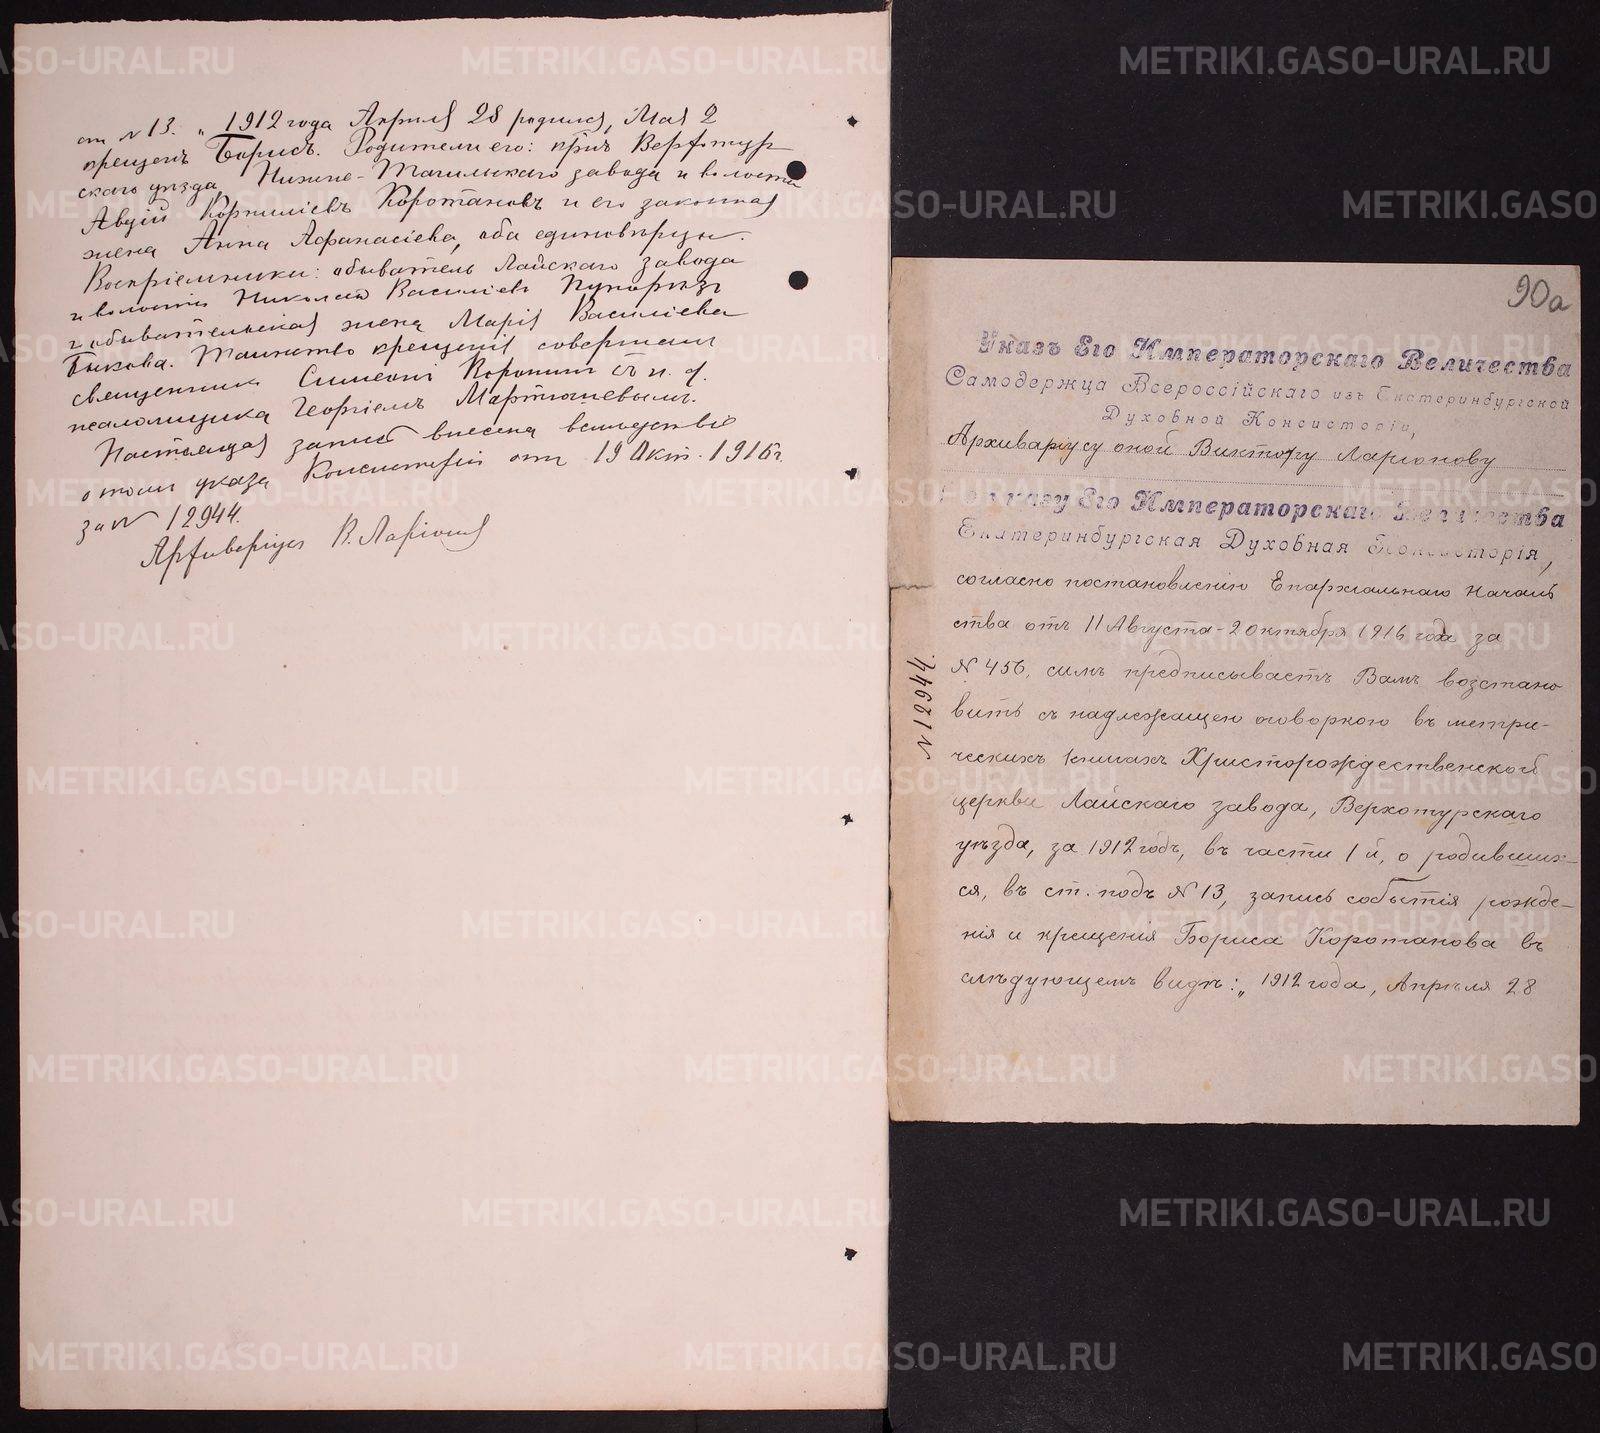 ст № 13. „1912 года Апреля 28 родился, Мая 2
крещенъ Борисъ. Родители его: кр-нъ Верхотур
скаго уѣзда Нижне-Тагильскаго завода и волости
Авдій Корниліевъ Коротановъ и его законная
жена Анна Афанасіева, оба единовѣрцы.
Воспріемники: обыватель Лайскаго завода
и волости Николай Василіевъ
и обывательская жена Марія Василіева
Быкова. Таинство крещенія совершалъ
священникъ Симеонъ съ и. д.
псаломщика Георгіемъ Мартюшевымъ.
Настоящая запись внесена вслѣдствіе
о томъ указа Консисторіи отъ 19 Окт. 1916 г.
за № 12944.
Архиваріусъ В. Ларіоновъ
90а
Указъ Его Императорскаго Величества
Самодержца Всероссійскаго изъ Екатеринбургской
Духовной Консисторіи,
Архиваріусу оной Виктору Ларіонову
По указу Его Императорскаго Величества
Екатеринбургская Духовная Консисторія,
согласно постановленію Епархіальнаго Началь
ства отъ 11 Августа - 2 октября 1916 года за
№ 456, симъ предписываетъ Вамъ возстано
вить съ надлежащею оговоркою въ метри-
ческихъ книгахъ Христорождественской
церкви Лайскаго завода, Верхотурскаго
уѣзда, за 1912 годъ, въ части 1й, о родивших-
ся, въ ст. подъ № 13, запись событія рожде-
нія и крещенія Бориса Коротанова въ
слѣдующемъ видѣ: „1912 года, Апрѣля 28
№ 12944.
METRIKI.GASO-URAL.RU